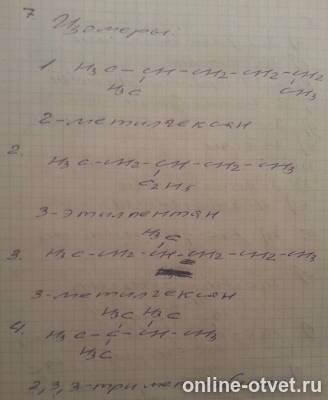 7
Изомеры:
1. H3C-CH-CH2-CH2-CH2
H3C CH3
2-метилгексан
2. H3C-CH2-CH-CH2-CH3
C2H5
3-этилпентан
H3C
3. H3C-CH2-CH-CH2-CH2-CH3
3-метилгексан
H3C H3C
4. H3C-C-CH-CH3
H3C
2,3,3-
online-otvet.ru